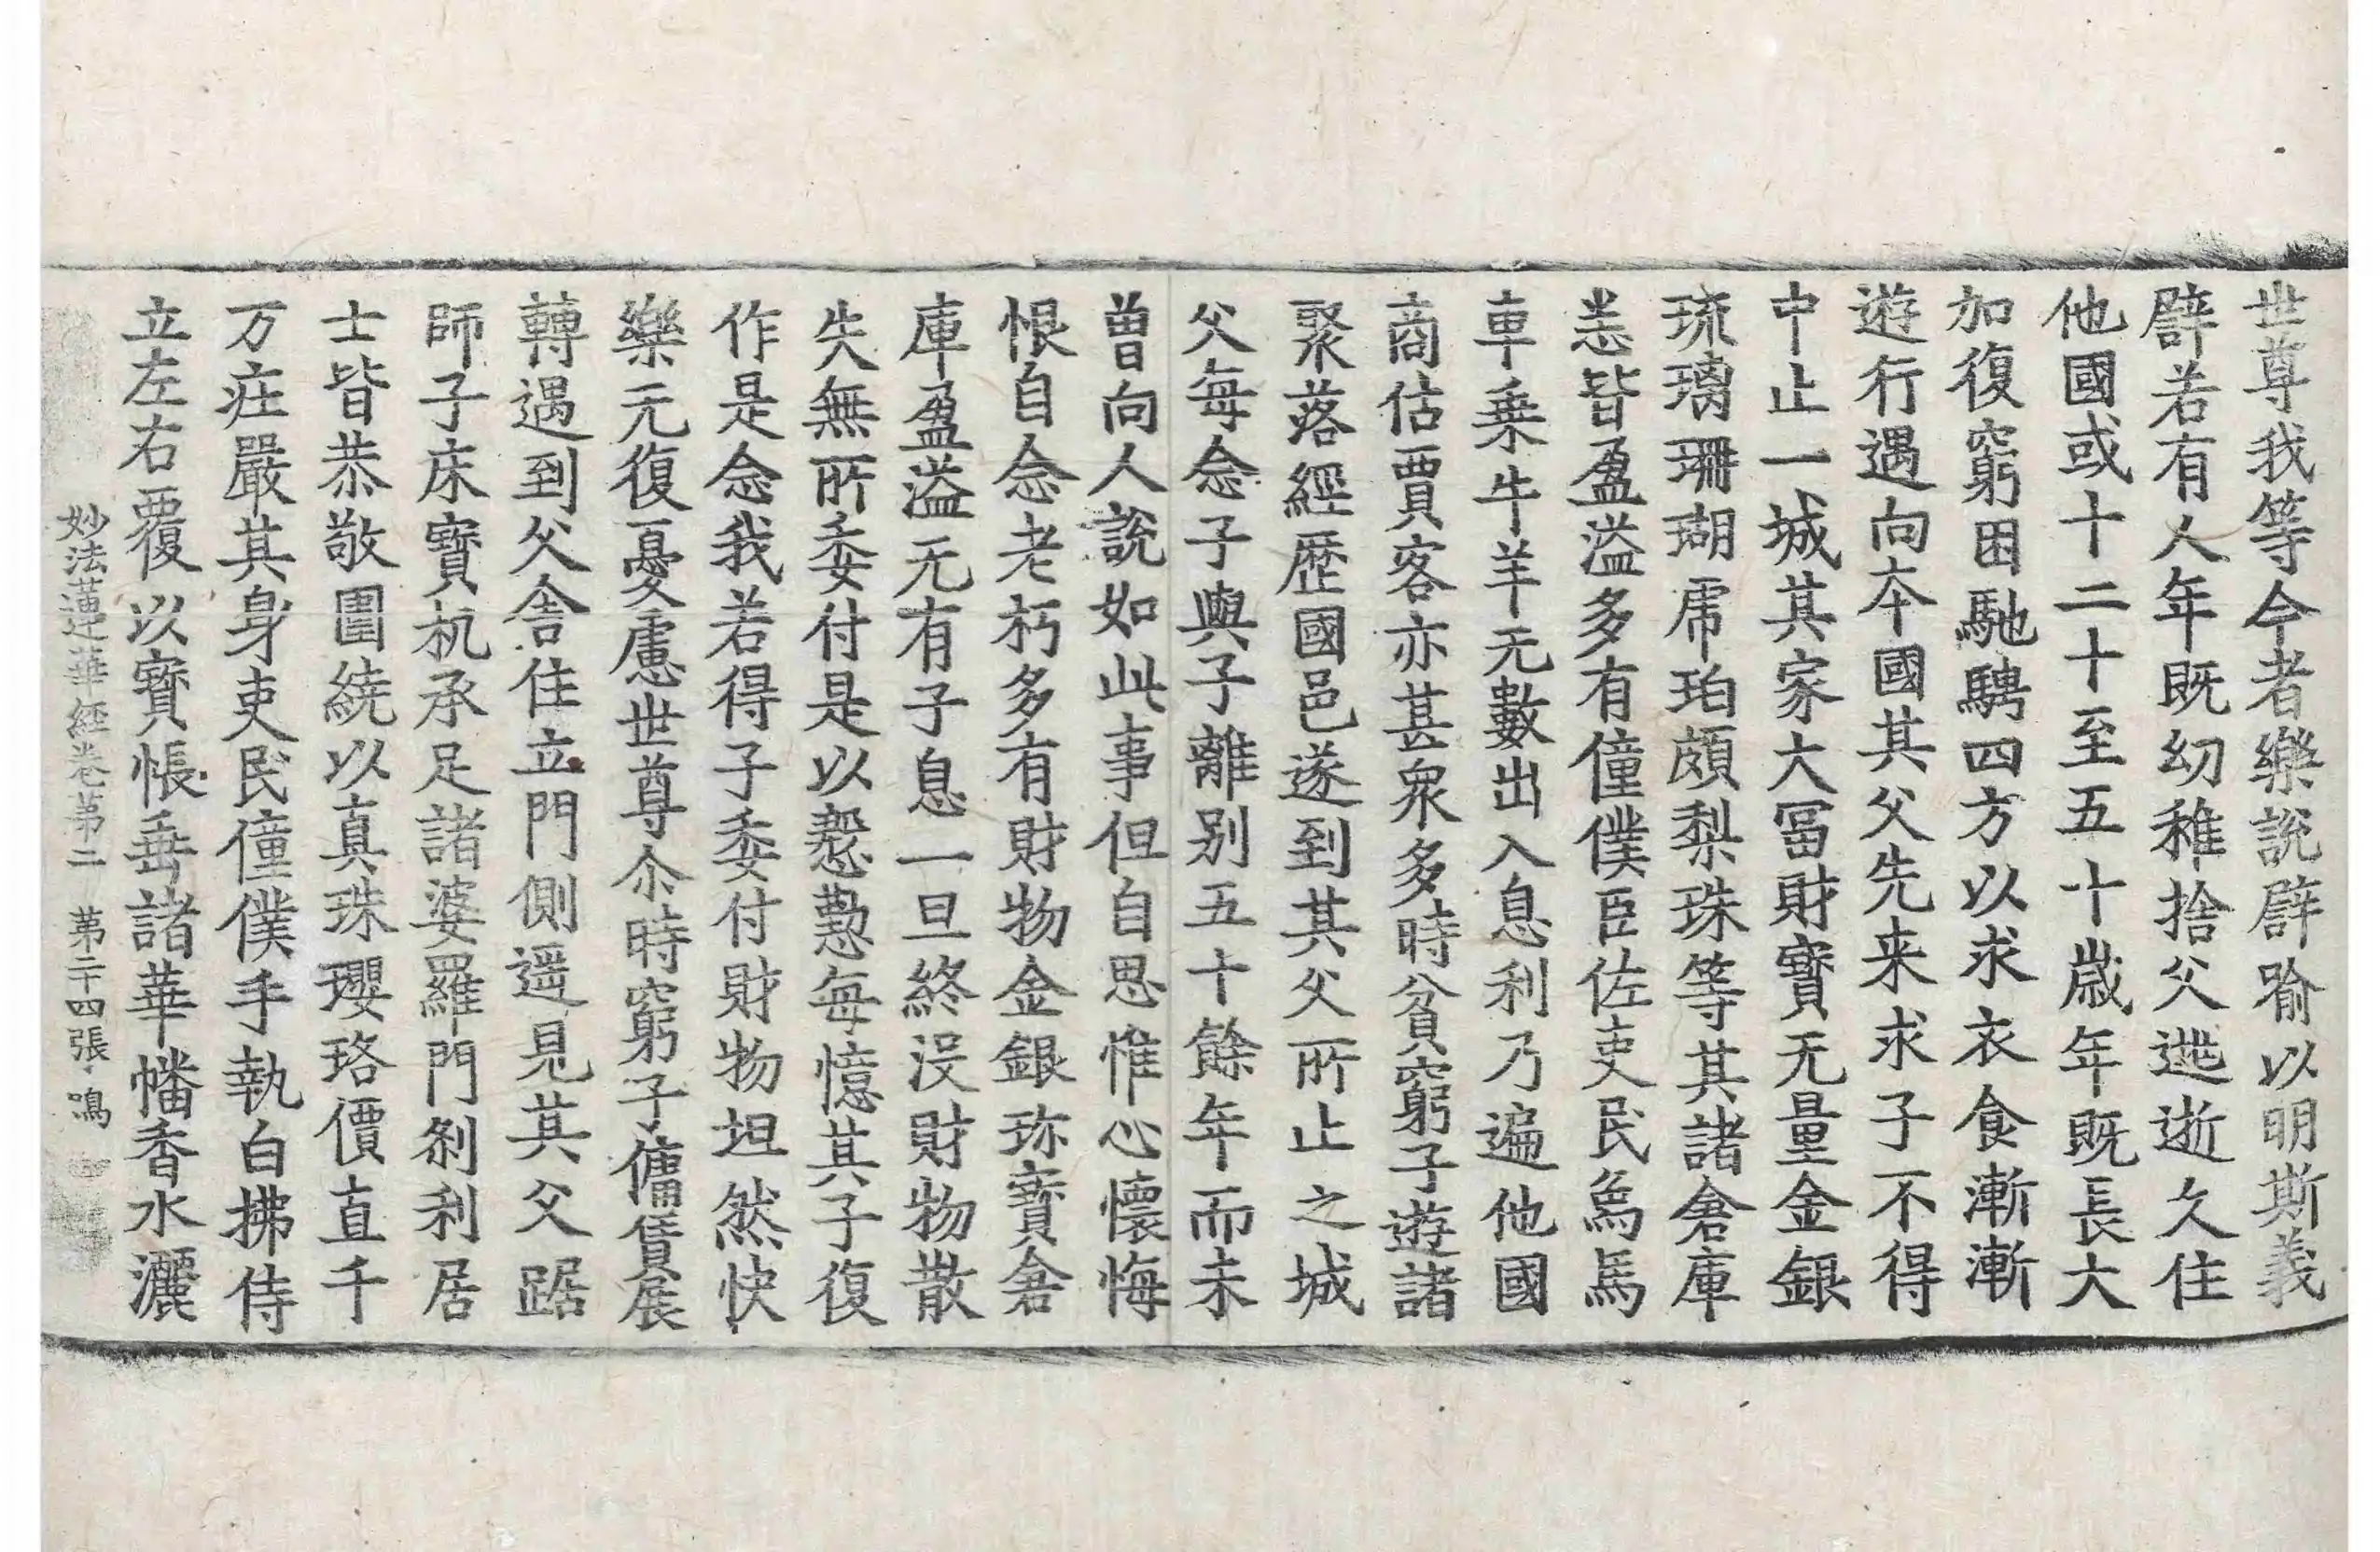 世尊我等今者樂說譬喻以明斯義
譬若有人年既幼稚捨父逃逝久住
他國或十二十至五十歲年既長大
加復窮困馳騁四方以求衣食漸漸
遊行遇向本國其父先来求子不得
中止一城其家大冨財寶无量金銀
琉璃珊瑚虎珀頗梨珠等其諸倉庫
悉皆盈溢多有僮僕臣佐吏民象馬
車乗牛羊无數出入息利乃遍他國
商估賈客亦甚衆多時貧窮子遊諸
聚落經歷國邑遂到其父所止之城
父每念子與子離別五十餘年而未
曽向人說如此事但自思惟心懷悔
恨自念老朽多有財物金銀珎寶倉
庫盈溢无有子息一旦終没財物散
失無所委付是以慇懃每憶其子復
作是念我若得子委付財物坦然快
樂无復憂慮世尊尒時窮子傭賃展
轉遇到父舍住立門側遥見其父踞
師子床寶机承足諸婆羅門剎利居
士皆恭敬圍繞以真珠瓔珞價直千
万疘嚴其身吏民僮僕手執白拂侍
立左右覆以寶帳垂諸華幡香水灑
妙法蓮華経卷第二 第二十四張 鳴